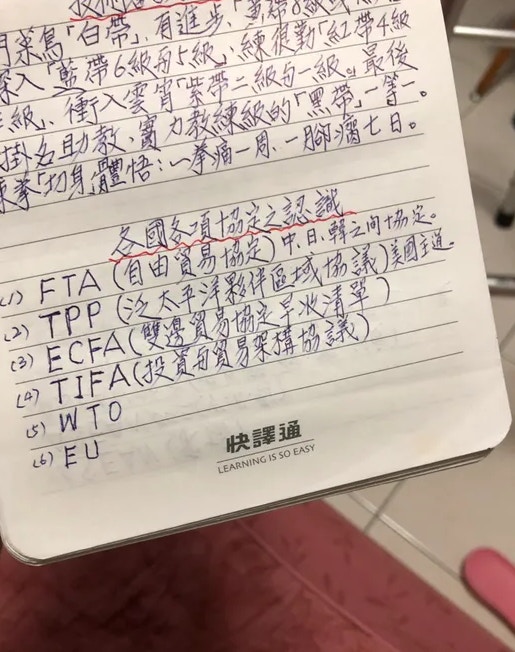 門菜鳥「白帶」、有進步、「黃帶8級
深入「藍帶6級而5級」；練很勤「紅帶4級
三級」、衝入雲霄「紫帶二級而一級」。最後
掛名助教、實力教練級的「黑帶」一等一。
練拳「切身」體悟：一拳痛一周、一腳痛七日。
各國各項協定之認識
(1) FTA (自由貿易協定) 中、日、韓之間協定。
(2) TPP (泛太平洋夥伴區域協議) 美國主導。
(3) ECFA (雙邊貿易協定早收清單)
(4) TIFA (投資與貿易架構協議)
(5) WTO
(6) EU
快譯通
LEARNING IS SO EASY